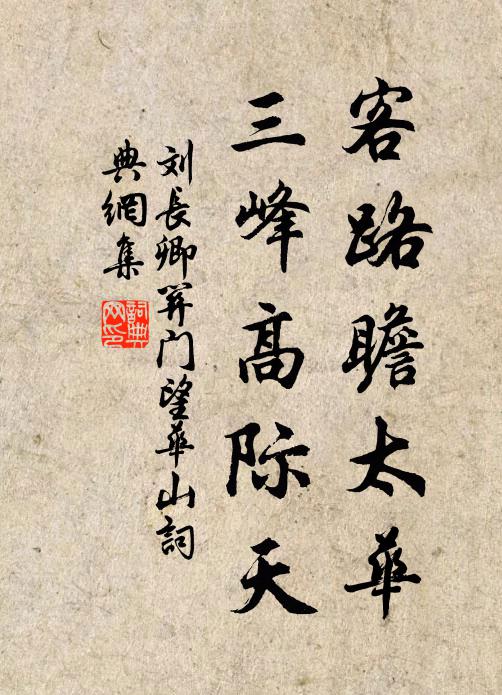 客路瞻太華
三峰高际天
刘長卿関门望華山詞
典網集
詞典
网印